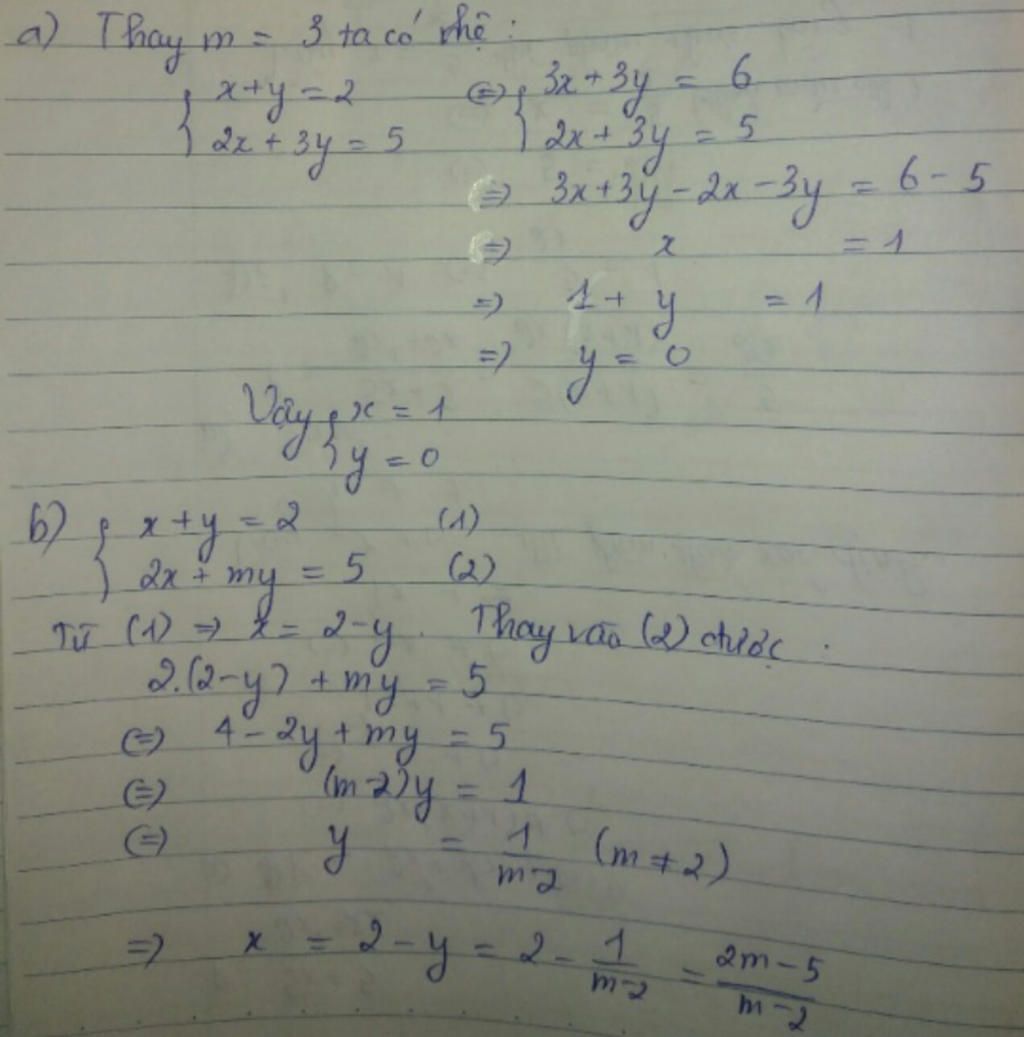 a) Thay m = 3 ta có hệ:
{ x+y = 2 ⇔ { 3x+3y = 6
2x + 3y = 5 2x + 3y = 5
⇒ 3x+3y-2x-3y = 6 - 5
⇒ x = 1
⇒ 1 + y = 1
⇒ y = 0
Vậy { x = 1
y = 0
b) { x + y = 2 (1)
2x + my = 5 (2)
Từ (1) ⇒ x = 2-y. Thay vào (2) được:
2.(2-y) + my = 5
⇔ 4 - 2y + my = 5
⇔ (m-2)y = 1
⇔ y = 1/(m-2) (m ≠ 2)
⇒ x = 2 - y = 2 - 1/(m-2) = (2m-5)/(m-2)